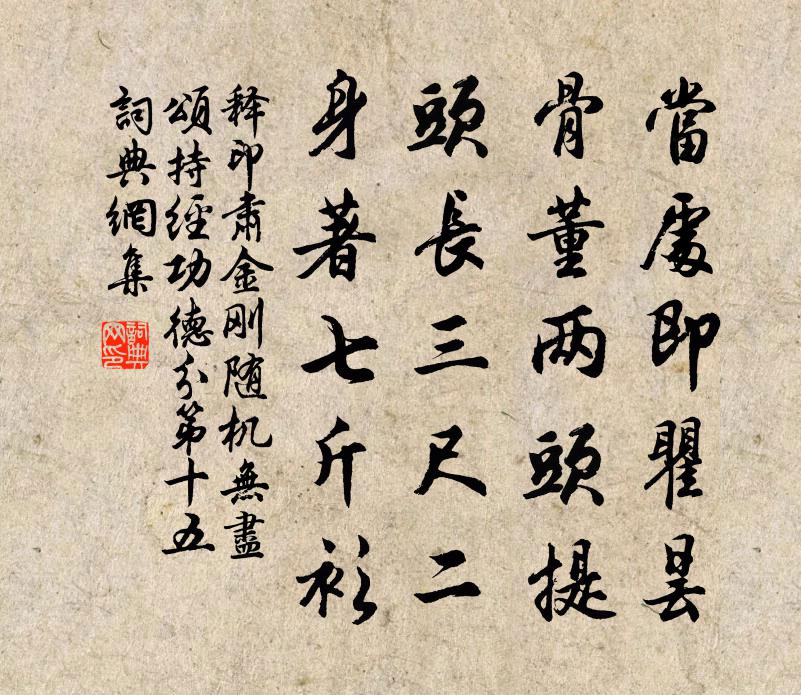 當處即瞿曇
骨董两頭提
頭長三尺二
身著七斤衫
释印肅金刚随机無盡
頌持經功德分第十五
詞典網集
詞典网印